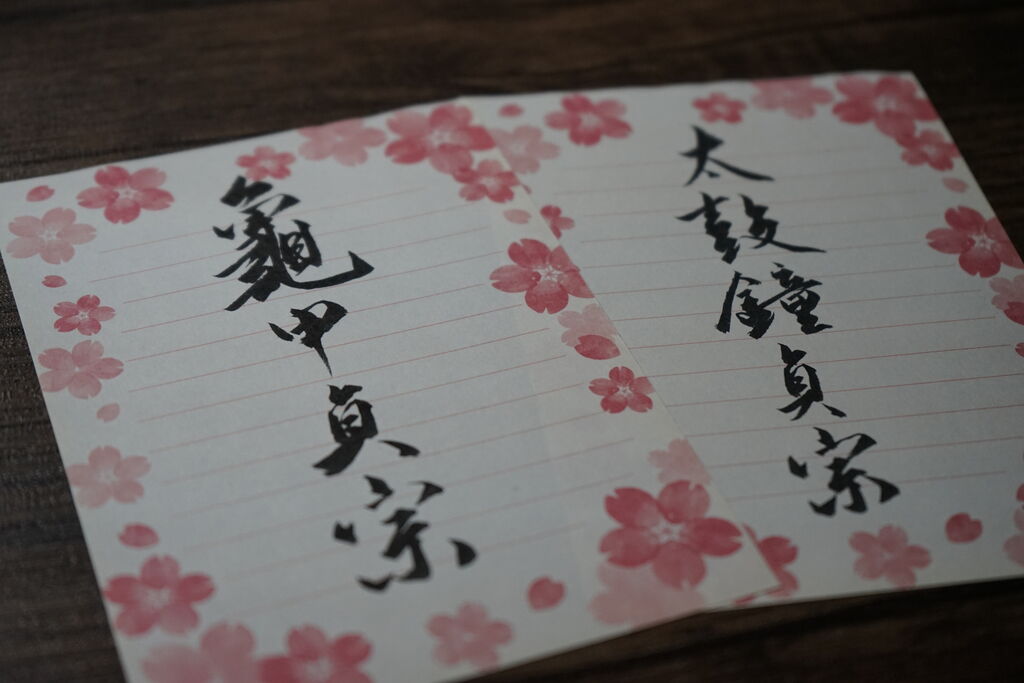 太鼓鐘貞宗
龜甲貞宗